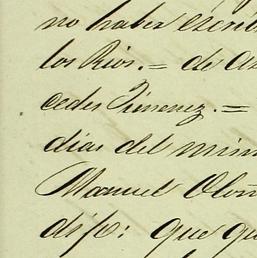 no haber escrib
los Rios.= de As
cedes Jimenez.=
dias del mism
Manuel Olon
dijo: que qu